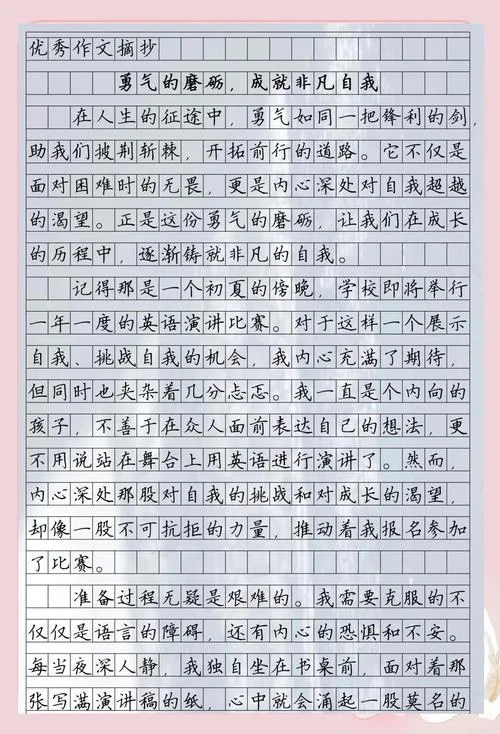 优秀作文摘抄
勇气的磨砺，成就非凡自我
在人生的征途中，勇气如同一把锋利的剑，
助我们披荆斩棘，开拓前行的道路。它不仅是
面对困难时的无畏，更是内心深处对自我超越
的渴望。正是这份勇气的磨砺，让我们在成长
的历程中，逐渐铸就非凡的自我。
记得那是一个初夏的傍晚，学校即将举行
一年一度的英语演讲比赛。对于这样一个展示
自我、挑战自我的机会，我内心充满了期待，
但同时也夹杂着几分忐忑。我一直是个内向的
孩子，不善于在众人面前表达自己的想法，更
不用说站在舞台上用英语进行演讲了。然而，
内心深处那股对自我的挑战和对成长的渴望，
却像一股不可抗拒的力量，推动着我报名参加
了比赛。
准备过程无疑是艰难的。我需要克服的不
仅仅是语言的障碍，还有内心的恐惧和不安。
每当夜深人静，我独自坐在书桌前，面对着那
张写满演讲稿的纸，心中就会涌起一股莫名的